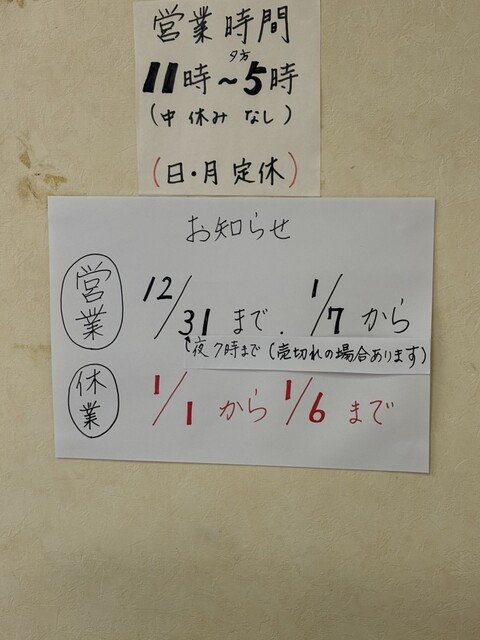 営業時間
夕方
11時~5時
(中休みなし)
(日・月定休)
お知らせ
営業 12/31まで. 1/7から
↑夜7時まで(売切れの場合あります)
休業 1/1から1/6まで